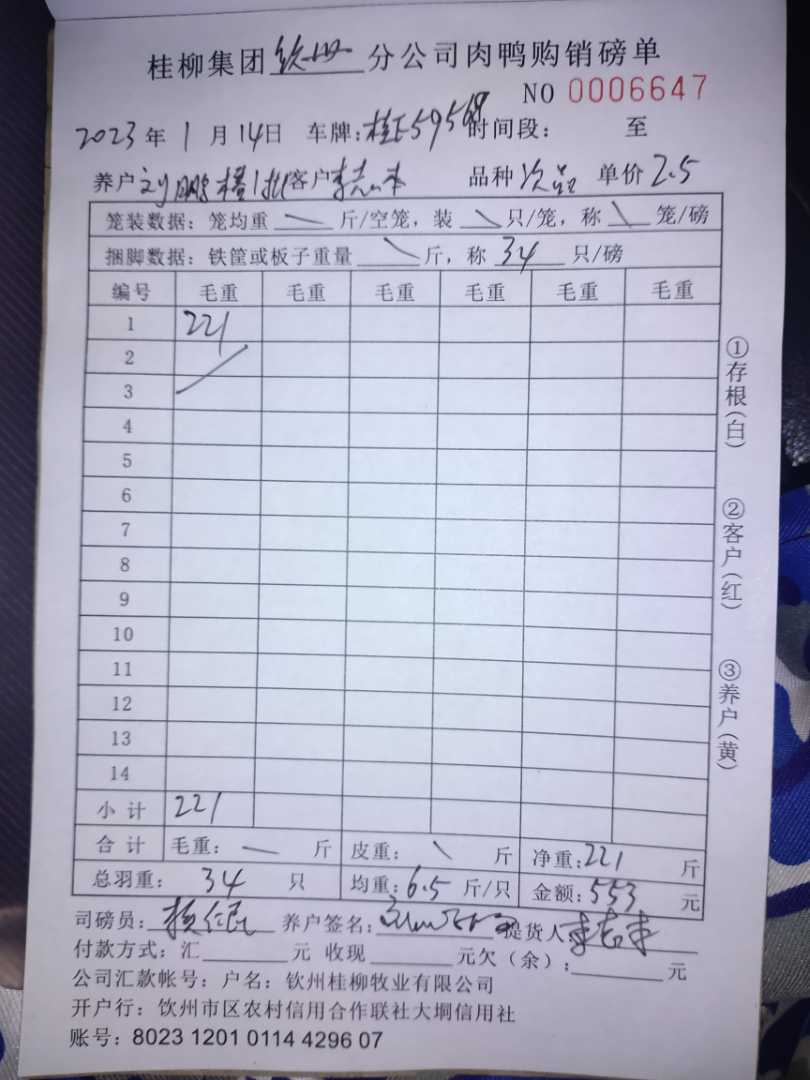 桂柳集团钦州分公司肉鸭购销磅单
NO 0006647
2023年1月14日 车牌:桂E59568 时间段: 至
养户刘鹏 客户李志 品种次品 单价2.5
笼装数据:笼均重 斤/空笼,装 只/笼,称 笼/磅
捆脚数据:铁筐或板子重量 斤,称 34 只/磅
编号 毛重 毛重 毛重 毛重 毛重 毛重
1 221
2
3
4
5
6
7
8
9
10
11
12
13
14
小计 221
合计 毛重: 斤 皮重: 斤 净重:221 斤
总羽重: 34 只 均重:6.5 斤/只 金额:553 元
司磅员: 养户签名: 提货人
付款方式:汇 元 收现 元欠(余): 元
公司汇款帐号:户名:钦州桂柳牧业有限公司
开户行:钦州市区农村信用合作联社大垌信用社
账号:8023 1201 0114 4296 07
①存根(白)
②客户(红)
③养户(黄)